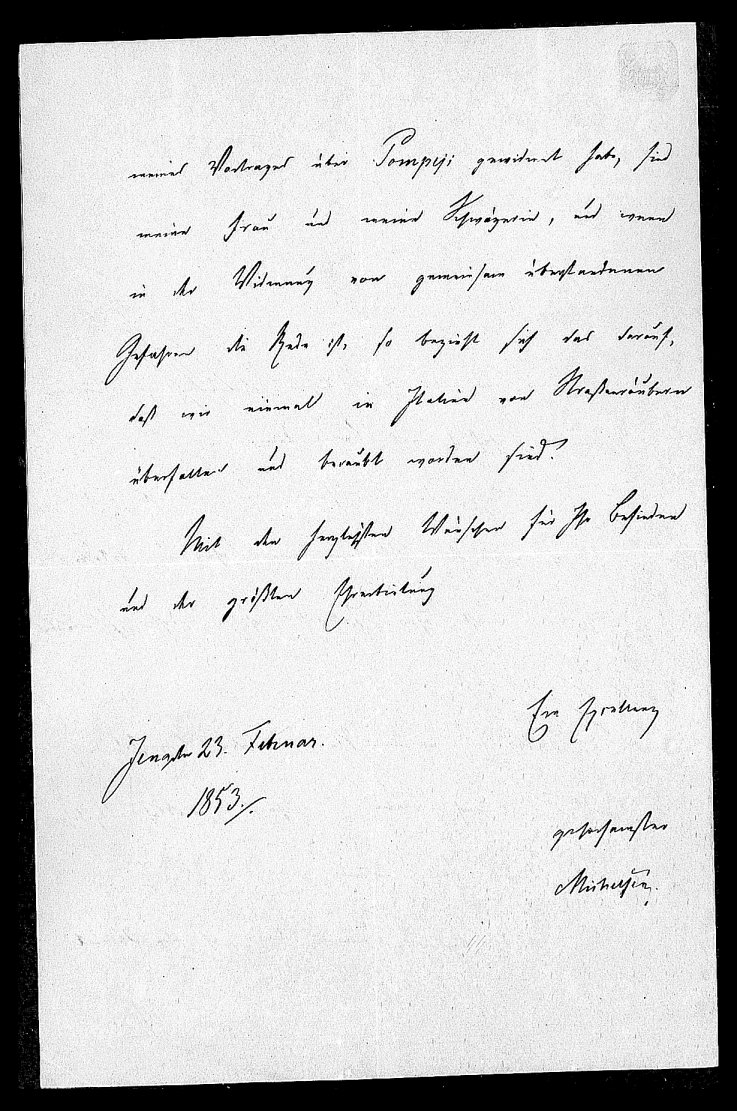 meines Vortrages über Pompeji gewidmet habe, sind
meine Frau und meine Schwägerin, und wenn
in der Widmung von gemeinsam überstandenen
Gefahren die Rede ist, so bezieht sich das darauf,
daß wir einmal in Italien von Straßenräubern
überfallen und beraubt worden sind.
Mit den herzlichsten Wünschen für Ihr Befinden
und der größten Ehrerbietung
Ew
Jena den 23. Februar.
1853.
gehorsamster
Michelsen.